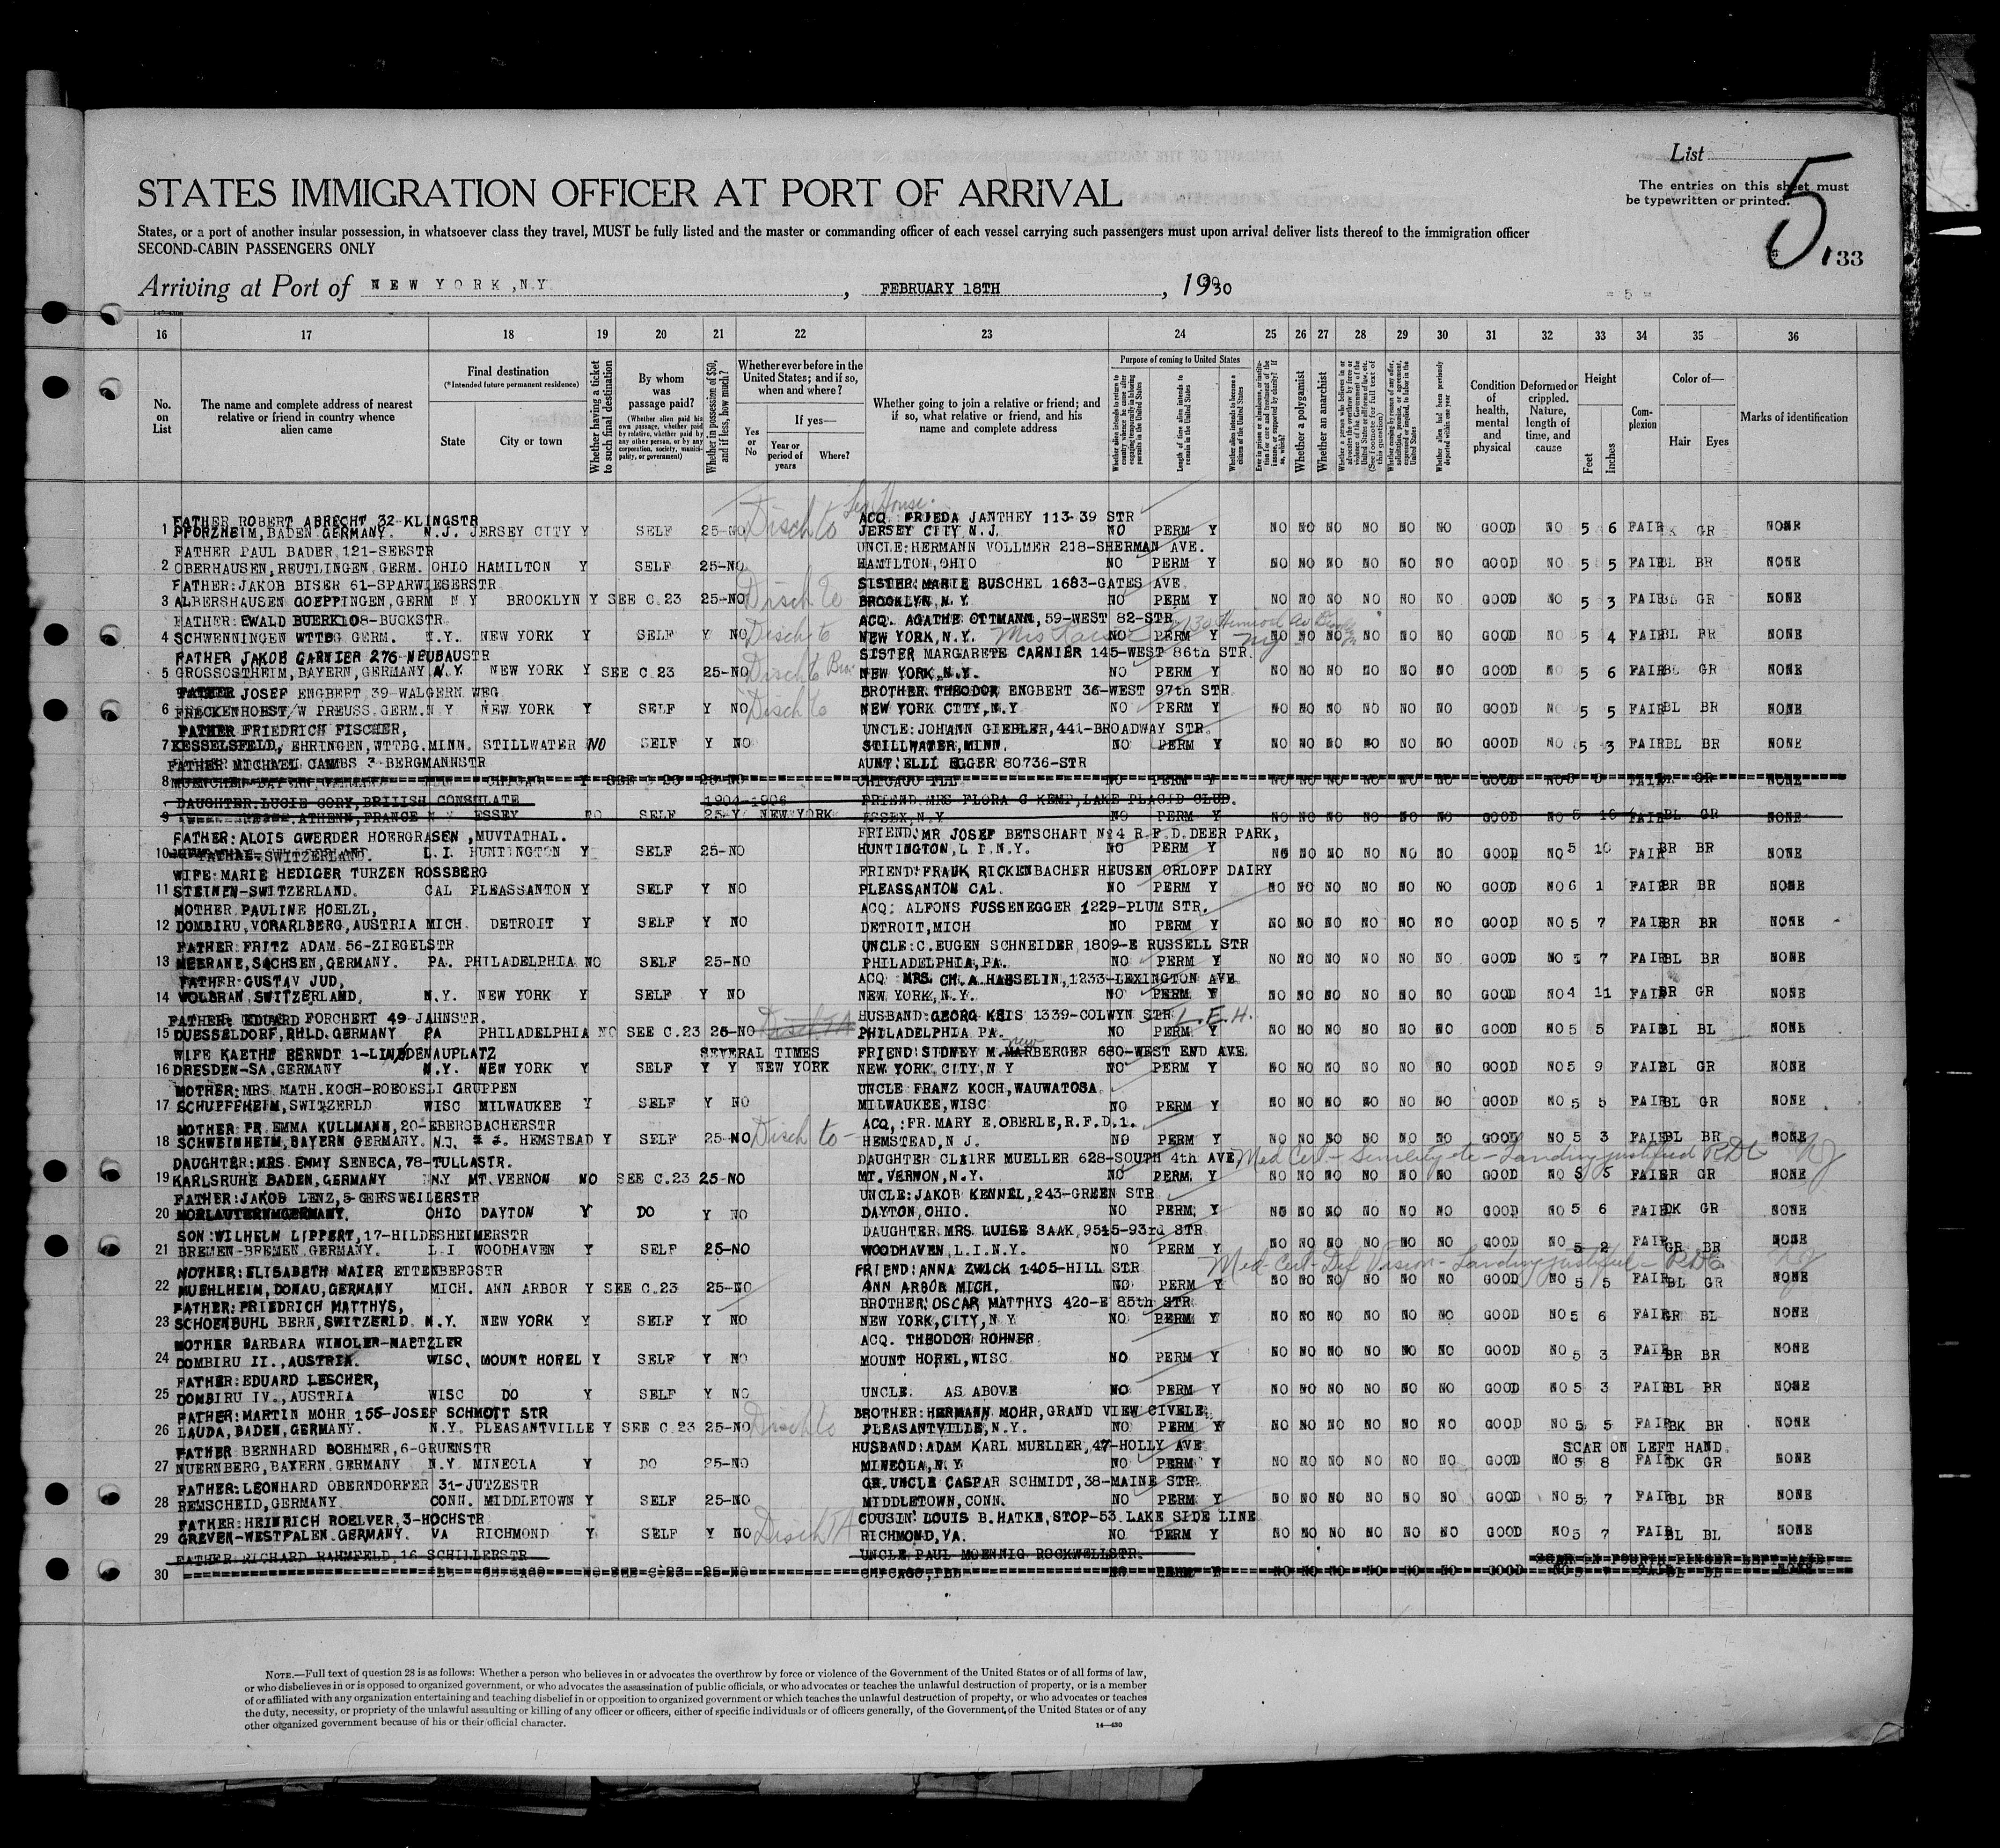 List
5
The entries on this sheet must
be typewritten or printed.
33
STATES IMMIGRATION OFFICER AT PORT OF ARRIVAL
States, or a port of another insular possession, in whatsoever class they travel, MUST be fully listed and the master or commanding officer of each vessel carrying such passengers must upon arrival deliver lists thereof to the immigration officer
SECOND-CABIN PASSENGERS ONLY
Arriving at Port of NEW YORK, N.Y. , FEBRUARY 18TH , 1930
- 5 -
16 17 18 19 20 21 22 23 24 25 26 27 28 29 30 31 32 33 34 35 36
No. on List
The name and complete address of nearest relative or friend in country whence alien came
Final destination
(*Intended future permanent residence)
State
City or town
Whether having a ticket to such final destination
By whom was passage paid?
(Whether alien paid his own passage, whether paid by relative, whether paid by any other person, or by any corporation, society, municipality, or government)
Whether in possession of $50, and if less, how much?
Whether ever before in the United States; and if so, when and where?
Yes or No
If yes—
Year or period of years
Where?
Whether going to join a relative or friend; and if so, what relative or friend, and his name and complete address
Purpose of coming to United States
Length of time alien intends to remain in the United States
Whether alien intends to become a citizen of the United States
Whether a polygamist
Whether an anarchist
Condition of health, mental and physical
Deformed or crippled. Nature, length of time, and cause
Height
Feet
Inches
Complexion
Color of—
Hair
Eyes
Marks of identification
FATHER ROBERT ABRECHT 32-KLINGSTR ACQ. FRIEDA JANTHEY 113-39 STR
1 PFORZHEIM, BADEN GERMANY. N.J. JERSEY CITY Y SELF 25-NO Disch to JERSEY CITY N.J. NO PERM Y NO NO NO NO NO NO GOOD NO 5 6 FAIR DK GR NONE
FATHER PAUL BADER 121-SEESTR UNCLE:HERMANN VOLLMER 218-SHERMAN AVE.
2 OBERHAUSEN, REUTLINGEN, GERM. OHIO HAMILTON Y SELF 25-NO HAMILTON, OHIO NO PERM Y NO NO NO NO NO NO GOOD NO 5 5 FAIR BL BR NONE
FATHER:JAKOB BISER 61-SPARWIESERSTR SISTER:MARIE BUSCHEL 1683-GATES AVE
3 ALBERSHAUSEN GOEPPINGEN, GERM N Y BROOKLYN Y SEE C.23 25-NO Disch to BROOKLYN, N.Y. NO PERM Y NO NO NO NO NO NO GOOD NO 5 3 FAIR BL GR NONE
FATHER:EWALD BUERK108-BUCKSTR. ACQ. AGATHE OTTMANN, 59-WEST 82-STR
4 SCHWENNINGEN WTTBG GERM. N.Y. NEW YORK Y SELF Y NO Disch to NEW YORK, N.Y. NO PERM Y NO NO NO NO NO NO GOOD NO 5 4 FAIR BL BR NONE
FATHER JAKOB GARNIER 276-NEUBAUSTR SISTER MARGARETE CARNIER 145-WEST 86th STR.
5 GROSSOSTHEIM, BAYERN, GERMANY N.Y. NEW YORK Y SEE C.23 25-NO Disch to NEW YORK, N.Y. NO PERM Y NO NO NO NO NO NO GOOD NO 5 6 FAIR BL GR NONE
FATHER JOSEF ENGBERT 39-WALGERN WEG BROTHER THEODOR ENGBERT 36-WEST 97th STR
6 FRECKENHORST/W PREUSS.GERM. N Y NEW YORK Y SELF Y NO Disch to NEW YORK CITY, N.Y NO PERM Y NO NO NO NO NO NO GOOD NO 5 5 FAIR BL BR NONE
FATHER FRIEDRICH FISCHER, UNCLE:JOHANN GIEBLER, 441-BROADWAY STR.
7 KESSELSFELD, EHRINGEN, WTTBG. MINN. STILLWATER NO SELF Y NO STILLWATER, MINN. NO PERM Y NO NO NO NO NO NO GOOD NO 5 3 FAIR BL BR NONE
FATHER MICHAEL CAMBS 3-BERGMANNSTR AUNT:ELLI EGGER 80736-STR
8 MUENCHEN BAYERN, GERMANY CHICAGO Y SEE C 23 25-NO CHICAGO ILL NO PERM Y NO NO NO NO NO NO GOOD NO 5 FAIR GR NONE
DAUGHTER.LUCIE GORY, BRITISH CONSULATE 1904-1906 FRIEND.MRS FLORA G KEMP, LAKE PLACID CLUB.
9 ATHENN, FRANCE N Y ESSEX NO SELF 25-Y NEW YORK ESSEX, N.Y NO PERM Y NO NO NO NO NO NO GOOD NO 5 10 FAIR BL GR NONE
FATHER:ALOIS GWERDER HOERGRASEN, MUVTATHAL. FRIEND:MR JOSEF BETSCHART No4 R.F.D.DEER PARK,
10 SWITZERLAND. L.I. HUNTINGTON Y SELF 25-NO HUNTINGTON, L I.N.Y. NO PERM Y NO NO NO NO NO NO GOOD NO 5 10 FAIR BR BR NONE
WIFE:MARIE HEDIGER TURZEN ROSSBERG FRIEND:FRAUK RICKENBACHER HEUSEN ORLOFF DAIRY
11 STEINEN-SWITZERLAND. CAL PLEASSANTON Y SELF Y NO PLEASSANTON CAL. NO PERM Y NO NO NO NO NO NO GOOD NO 6 1 FAIR BR BR NONE
MOTHER PAULINE HOELZL, ACQ: ALFONS FUSSENEGGER 1229-PLUM STR.
12 DOMBIRU, VORARLBERG, AUSTRIA MICH. DETROIT Y SELF Y NO DETROIT, MICH NO PERM Y NO NO NO NO NO NO GOOD NO 5 7 FAIR BR BR NONE
FATHER:FRITZ ADAM 56-ZIEGELSTR UNCLE:C.EUGEN SCHNEIDER 1809-E RUSSELL STR
13 MEERANE, SACHSEN, GERMANY. PA. PHILADELPHIA NO SELF 25-NO PHILADELPHIA, PA. NO PERM Y NO NO NO NO NO NO GOOD NO 5 7 FAIR BL BR NONE
FATHER:GUSTAV JUD, ACQ MRS CH.A.HAESELIN, 1233-LEXINGTON AVE
14 WOLBRAN, SWITZERLAND, N.Y. NEW YORK Y SELF Y NO NEW YORK, N.Y. NO PERM Y NO NO NO NO NO NO GOOD NO 4 11 FAIR BR GR NONE
FATHER: EDUARD FORCHERT 49-JAHNSTR. HUSBAND:GEORG KEIS 1339-COLWYN STR L.E.H.
15 DUESSELDORF, RHLD.GERMANY PA PHILADELPHIA NO SEE C.23 25-NO PHILADELPHIA PA. NO PERM Y NO NO NO NO NO NO GOOD NO 5 5 FAIR BL BL NONE
WIFE KAETHE BERNDT 1-LINDENAUPLATZ SEVERAL TIMES FRIEND:SIDNEY M.MARBERGER 680-WEST END AVE.
16 DRESDEN-SA.GERMANY N.Y. NEW YORK Y SELF Y Y NEW YORK NEW YORK CITY, N Y NO PERM Y NO NO NO NO NO NO GOOD NO 5 9 FAIR BL GR NONE
MOTHER:MRS MATH.KOCH-ROEOESLI GRUPPEN UNCLE FRANZ KOCH, WAUWATOSA
17 SCHUPFHEIM, SWITZERLD WISC MILWAUKEE Y SELF Y NO MILWAUKEE, WISC NO PERM Y NO NO NO NO NO NO GOOD NO 5 5 FAIR BL GR NONE
MOTHER FR EMMA KULLMANN, 20-EBERSBACHERSTR ACQ,:FR.MARY E.OBERLE, R.F.D.1.
18 SCHWEINHEIM, BAYERN GERMANY. N.J. HEMSTEAD Y SELF 25-NO Disch to HEMSTEAD, N J. NO PERM Y NO NO NO NO NO NO GOOD NO 5 3 FAIR BL BR NONE
DAUGHTER:MRS EMMY SENECA, 78-TULLASTR. DAUGHTER CLAIRE MUELLER 628-SOUTH 4th AVE Med Cert - Senility etc - Landing justified RDC
19 KARLSRUHE BADEN, GERMANY N.Y MT.VERNON NO SEE C.23 25-NO MT.VERNON, N.Y. NO PERM Y NO NO NO NO NO NO GOOD NO 5 5 FAIR GR GR NONE
FATHER:JAKOB LENZ, 5-GERSWEILERSTR UNCLE:JAKOB KENNEL, 243-GREEN STR
20 MORLAUTERN GERMANY. OHIO DAYTON Y DO Y NO DAYTON, OHIO. NO PERM Y NO NO NO NO NO NO GOOD NO 5 6 FAIR DK GR NONE
SON:WILHELM LIPPERT, 17-HILDESHEIMERSTR DAUGHTER.MRS LUISE SAAK, 9515-93rd STR
21 BREMEN-BREMEN GERMANY. L.I WOODHAVEN Y SELF 25-NO WOODHAVEN, L.I.N.Y. NO PERM Y NO NO NO NO NO NO GOOD NO 5 2 FAIR GR BR NONE
MOTHER:ELISABETH MAIER ETTENBERGSTR FRIEND:ANNA ZWICK 1405-HILL STR Med Cert - Def Vision - Landing justified - RDC
22 MUEHLHEIM, DONAU, GERMANY MICH. ANN ARBOR Y SEE C.23 25-NO ANN ARBOR MICH. NO PERM Y NO NO NO NO NO NO GOOD NO 5 5 FAIR BL GR NONE
FATHER:FRIEDRICH MATTHYS, BROTHER:OSCAR MATTHYS 420-E 85th STR
23 SCHOENBUHL BERN, SWITZERLD N.Y. NEW YORK Y SELF Y NO NEW YORK, CITY, N Y NO PERM Y NO NO NO NO NO NO GOOD NO 5 6 FAIR GR BL NONE
MOTHER BARBARA WINOLER-MAETZLER ACQ. THEODOR ROHNER.
24 DOMBIRU II., AUSTRIA. WISC. MOUNT HOREL Y SELF Y NO MOUNT HOREL, WISC NO PERM Y NO NO NO NO NO NO GOOD NO 5 3 FAIR BR BR NONE
FATHER:EDUARD LESCHER,
25 DOMBIRU IV., AUSTRIA WISC DO Y SELF Y NO UNCLE. AS ABOVE NO PERM Y NO NO NO NO NO NO GOOD NO 5 3 FAIR BL BR NONE
FATHER:MARTIN MOHR 155-JOSEF SCHMOTT STR BROTHER:HERMANN MOHR, GRAND VIEW CIVELE,
26 LAUDA, BADEN, GERMANY. N.Y. PLEASANTVILLE Y SEE C.23 25-NO Disch to PLEASANTVILLE, N.Y. NO PERM Y NO NO NO NO NO NO GOOD NO 5 5 FAIR BK BR NONE
FATHER BERNHARD BOEHMER, 6-GRUENSTR HUSBAND:ADAM KARL MUELLER, 47-HOLLY AVE SCAR ON LEFT HAND.
27 NUERNBERG, BAYERN GERMANY N.Y. MINEOLA Y DO 25-NO MINEOLA, N Y NO PERM Y NO NO NO NO NO NO GOOD NO 5 8 FAIR DK GR NONE
FATHER:LEONHARD OBERNDORFER 31-JUTZESTR GR.UNCLE CASPAR SCHMIDT, 38-MAINE STR.
28 REMSCHEID, GERMANY CONN. MIDDLETOWN Y SELF 25-NO MIDDLETOWN, CONN. NO PERM Y NO NO NO NO NO NO GOOD NO 5 7 FAIR BL BR NONE
FATHER:HEINRICH ROELVER, 3-HOCHSTR COUSIN: LOUIS B.HATKE, STOP-53 LAKE SIDE LINE
29 GREVEN-WESTFALEN GERMANY. VA RICHMOND Y SELF Y NO RICHMOND, VA. NO PERM Y NO NO NO NO NO NO GOOD NO 5 7 FAIR BL BL NONE
FATHER RICHARD RAHMFELD, 16 SCHILLERSTR UNCLE PAUL MOENNIG ROCKWELLSTR. SCAR ON FOURTH FINGER LEFT HAND
30 CHICAGO NO SEE C.23 25-NO CHICAGO, NO PERM Y NO NO NO NO NO NO GOOD NO 5 FAIR NONE
NOTE.—Full text of question 28 is as follows: Whether a person who believes in or advocates the overthrow by force or violence of the Government of the United States or of all forms of law,
or who disbelieves in or is opposed to organized government, or who advocates the assassination of public officials, or who advocates or teaches the unlawful destruction of property, or is a member
of or affiliated with any organization entertaining and teaching disbelief in or opposition to organized government or which teaches the unlawful destruction of property, or who advocates or teaches
the duty, necessity, or propriety of the unlawful assaulting or killing of any officer or officers, either of specific individuals or of officers generally, of the Government of the United States or of any
other organized government because of his or their official character.
14—430